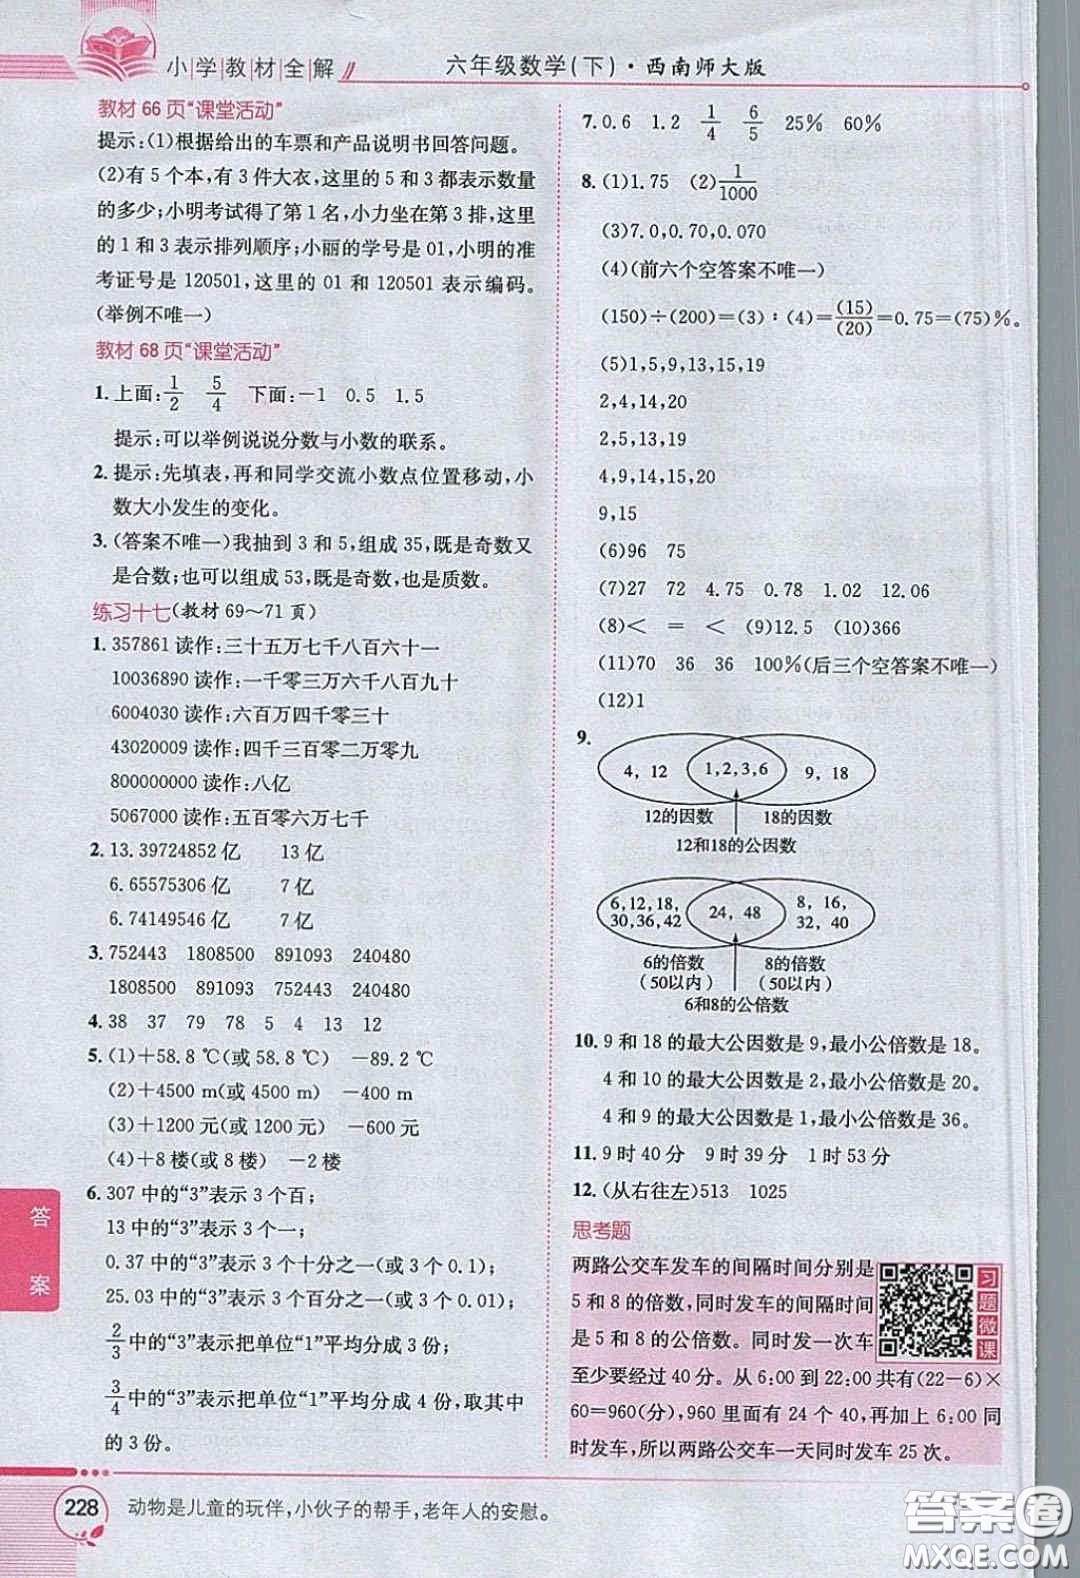 小学教材全解
六年级数学(下)·西南师大版
教材 66 页“课堂活动”
提示:(1)根据给出的车票和产品说明书回答问题。
(2)有 5 个本,有 3 件大衣,这里的 5 和 3 都表示数量
的多少;小明考试得了第 1 名,小力坐在第 3 排,这里
的 1 和 3 表示排列顺序;小丽的学号是 01,小明的准
考证号是 120501,这里的 01 和 120501 表示编码。
(举例不唯一)
教材 68 页“课堂活动”
1. 上面:1/2 5/4 下面:−1 0.5 1.5
提示:可以举例说说分数与小数的联系。
2. 提示:先填表,再和同学交流小数点位置移动,小
数大小发生的变化。
3. (答案不唯一)我抽到 3 和 5,组成 35,既是奇数又
是合数;也可以组成 53,既是奇数,也是质数。
练习十七(教材 69～71 页)
1. 357861 读作:三十五万七千八百六十一
10036890 读作:一千零三万六千八百九十
6004030 读作:六百万四千零三十
43020009 读作:四千三百零二万零九
800000000 读作:八亿
5067000 读作:五百零六万七千
2. 13.39724852 亿 13 亿
6.65575306 亿 7 亿
6.74149546 亿 7 亿
3. 752443 1808500 891093 240480
1808500 891093 752443 240480
4. 38 37 79 78 5 4 13 12
5. (1)+58.8 ℃(或 58.8 ℃) −89.2 ℃
(2)+4500 m(或 4500 m) −400 m
(3)+1200 元(或 1200 元) −600 元
(4)+8 楼(或 8 楼) −2 楼
6. 307 中的“3”表示 3 个百;
13 中的“3”表示 3 个一;
0.37 中的“3”表示 3 个十分之一(或 3 个 0.1);
25.03 中的“3”表示 3 个百分之一(或 3 个 0.01);
2/3 中的“3”表示把单位“1”平均分成 3 份;
3/4 中的“3”表示把单位“1”平均分成 4 份,取其中
的 3 份。
7. 0.6 1.2 1/4 6/5 25% 60%
8. (1)1.75 (2)1/1000
(3)7.0,0.70,0.070
(4)(前六个空答案不唯一)
(150)÷(200)=(3)∶(4)=(15)/(20)=0.75=(75)%。
(5)1,5,9,13,15,19
2,4,14,20
2,5,13,19
4,9,14,15,20
9,15
(6)96 75
(7)27 72 4.75 0.78 1.02 12.06
(8)< = < (9)12.5 (10)366
(11)70 36 36 100%(后三个空答案不唯一)
(12)1
9.
4, 12 1,2,3,6 9, 18
12的因数 18的因数
12和18的公因数
6,12,18,
30,36,42
24, 48
8, 16,
32, 40
6的倍数 8的倍数
(50以内) (50以内)
6和8的公倍数
10. 9 和 18 的最大公因数是 9,最小公倍数是 18。
4 和 10 的最大公因数是 2,最小公倍数是 20。
4 和 9 的最大公因数是 1,最小公倍数是 36。
11. 9 时 40 分 9 时 39 分 1 时 53 分
12. (从右往左)513 1025
思考题
两路公交车发车的间隔时间分别是
5 和 8 的倍数,同时发车的间隔时间
是 5 和 8 的公倍数。同时发一次车
至少要经过 40 分。从 6:00 到 22:00 共有(22−6)×
60=960(分),960 里面有 24 个 40,再加上 6:00 同
时发车,所以两路公交车一天同时发车 25 次。
习题微课
答案
228
动物是儿童的玩伴,小伙子的帮手,老年人的安慰。
答案圈
MXQE.COM